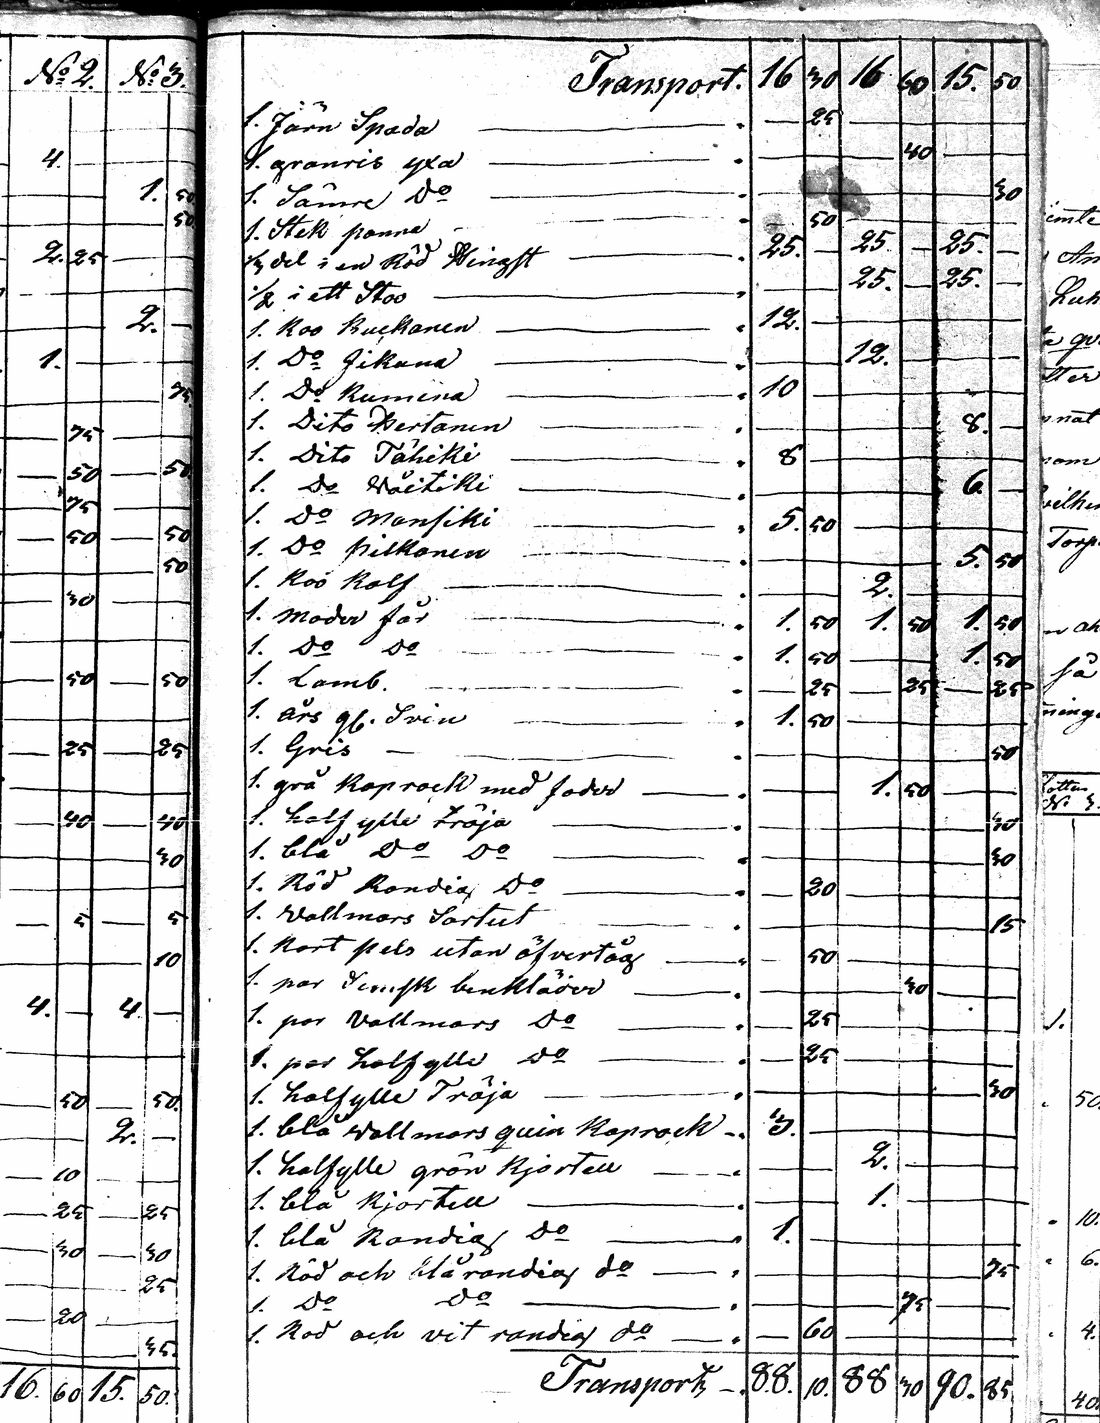 No 2. No 3.
4.
1. 50
50
2. 25
2.
1.
75
75
50 50
75
50 50
50
30
50 50
25 25
40 40
30
5 5
10
4. 4.
50 50.
2.
10
25 25
30 30
25
20
35.
16. 60 15. 50.
Transport. 16 30 16 60 15. 50
1. Järn Spada 25
1. granris yxa 40
1. Sämre Do 30
1. Stek panna 50
1/3 del i en Röd Hingst 25. 25. 25.
1/2 i ett Stoo 25. 25.
1. Koo Kuckanen 12.
1. Do Jikana 12.
1. Do Rumina 10
1. Dito Hertanen 8.
1. Dito Tähiki 8
1. Do Wäitiki 6
1. Do Mansiki 5. 50
1. Do Pilkanen 5. 50
1. Koo Kalf 2.
1. Moder får 1. 50 1. 50 1. 50
1. Do Do 1. 50 1. 50
1. Lamb. 25 25 25
1. års gl. Svin 1. 50
1. Gris 50
1. grå Kaprock med foder 1. 50
1. half ylle Tröja 30
1. blå Do Do 30
1. Röd Randig Do 20
1. Vallmars Sartut 15
1. Kort pels utan öfvertåg 50
1. par Semsk benkläder 30
1. par Vallmars Do 25
1. par halfylle Do 25
1. halfylle Tröja 30
1. blå Vallmars quin Kaprock 3.
1. halfylle grön Kjortell 2.
1. blå Kjortell 1.
1. blå Randig Do 1.
1. Röd och blårandig do 75
1. Do Do 75
1. Röd och vit randig do 60
Transport 88. 10. 88 30 90. 85
50.
10.
6.
4.
40